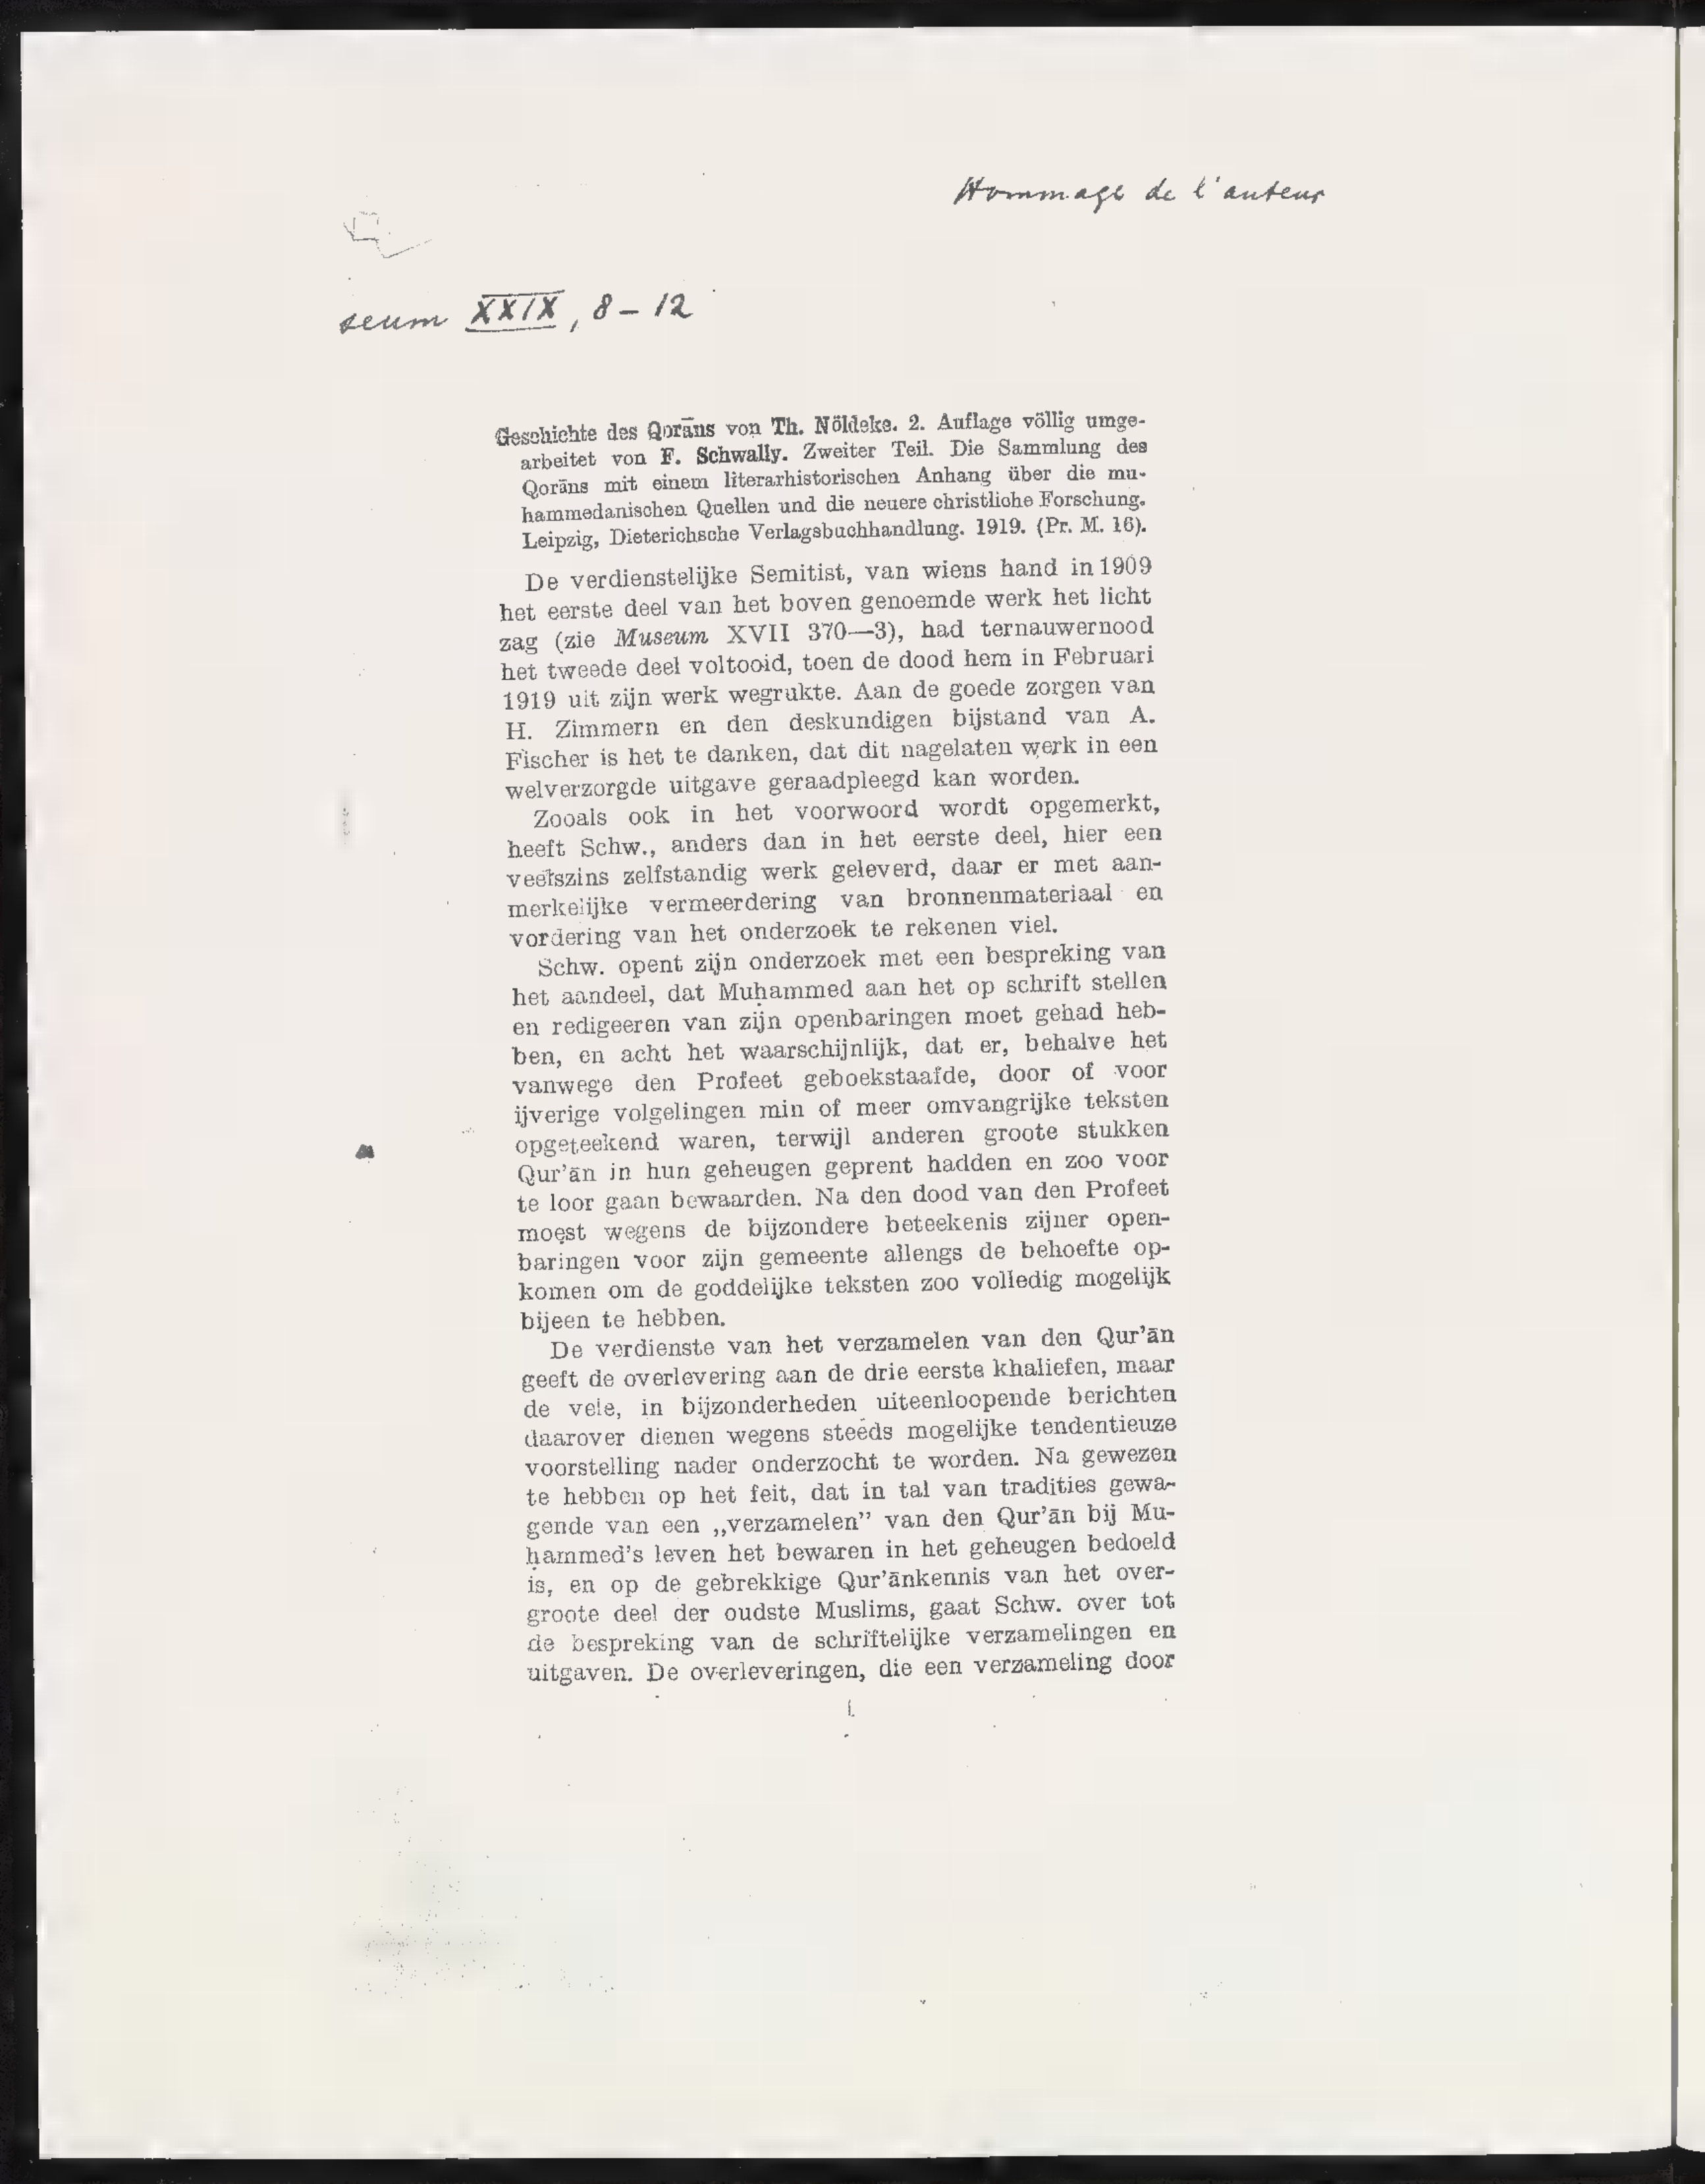 Hommage de l'auteur
seum XXIX, 8 – 12
Geschichte des Qorāns von Th. Nöldeke. 2. Auflage völlig umge-
arbeitet von F. Schwally. Zweiter Teil. Die Sammlung des
Qorāns mit einem literarhistorischen Anhang über die mu-
hammedanischen Quellen und die neuere christliche Forschung.
Leipzig, Dieterichsche Verlagsbuchhandlung. 1919. (Pr. M. 16).
De verdienstelijke Semitist, van wiens hand in 1909
het eerste deel van het boven genoemde werk het licht
zag (zie Museum XVII 370—3), had ternauwernood
het tweede deel voltooid, toen de dood hem in Februari
1919 uit zijn werk wegrukte. Aan de goede zorgen van
H. Zimmern en den deskundigen bijstand van A.
Fischer is het te danken, dat dit nagelaten werk in een
welverzorgde uitgave geraadpleegd kan worden.
Zooals ook in het voorwoord wordt opgemerkt,
heeft Schw., anders dan in het eerste deel, hier een
veelszins zelfstandig werk geleverd, daar er met aan-
merkelijke vermeerdering van bronnenmateriaal en
vordering van het onderzoek te rekenen viel.
Schw. opent zijn onderzoek met een bespreking van
het aandeel, dat Muḥammed aan het op schrift stellen
en redigeeren van zijn openbaringen moet gehad heb-
ben, en acht het waarschijnlijk, dat er, behalve het
vanwege den Profeet geboekstaafde, door of voor
ijverige volgelingen min of meer omvangrijke teksten
opgeteekend waren, terwijl anderen groote stukken
Qur'ān in hun geheugen geprent hadden en zoo voor
te loor gaan bewaarden. Na den dood van den Profeet
moest wegens de bijzondere beteekenis zijner open-
baringen voor zijn gemeente allengs de behoefte op-
komen om de goddelijke teksten zoo volledig mogelijk
bijeen te hebben.
De verdienste van het verzamelen van den Qur'ān
geeft de overlevering aan de drie eerste khaliefen, maar
de vele, in bijzonderheden uiteenloopende berichten
daarover dienen wegens steeds mogelijke tendentieuze
voorstelling nader onderzocht te worden. Na gewezen
te hebben op het feit, dat in tal van tradities gewa-
gende van een „verzamelen” van den Qur'ān bij Mu-
ḥammed's leven het bewaren in het geheugen bedoeld
is, en op de gebrekkige Qur'ānkennis van het over-
groote deel der oudste Muslims, gaat Schw. over tot
de bespreking van de schriftelijke verzamelingen en
uitgaven. De overleveringen, die een verzameling door